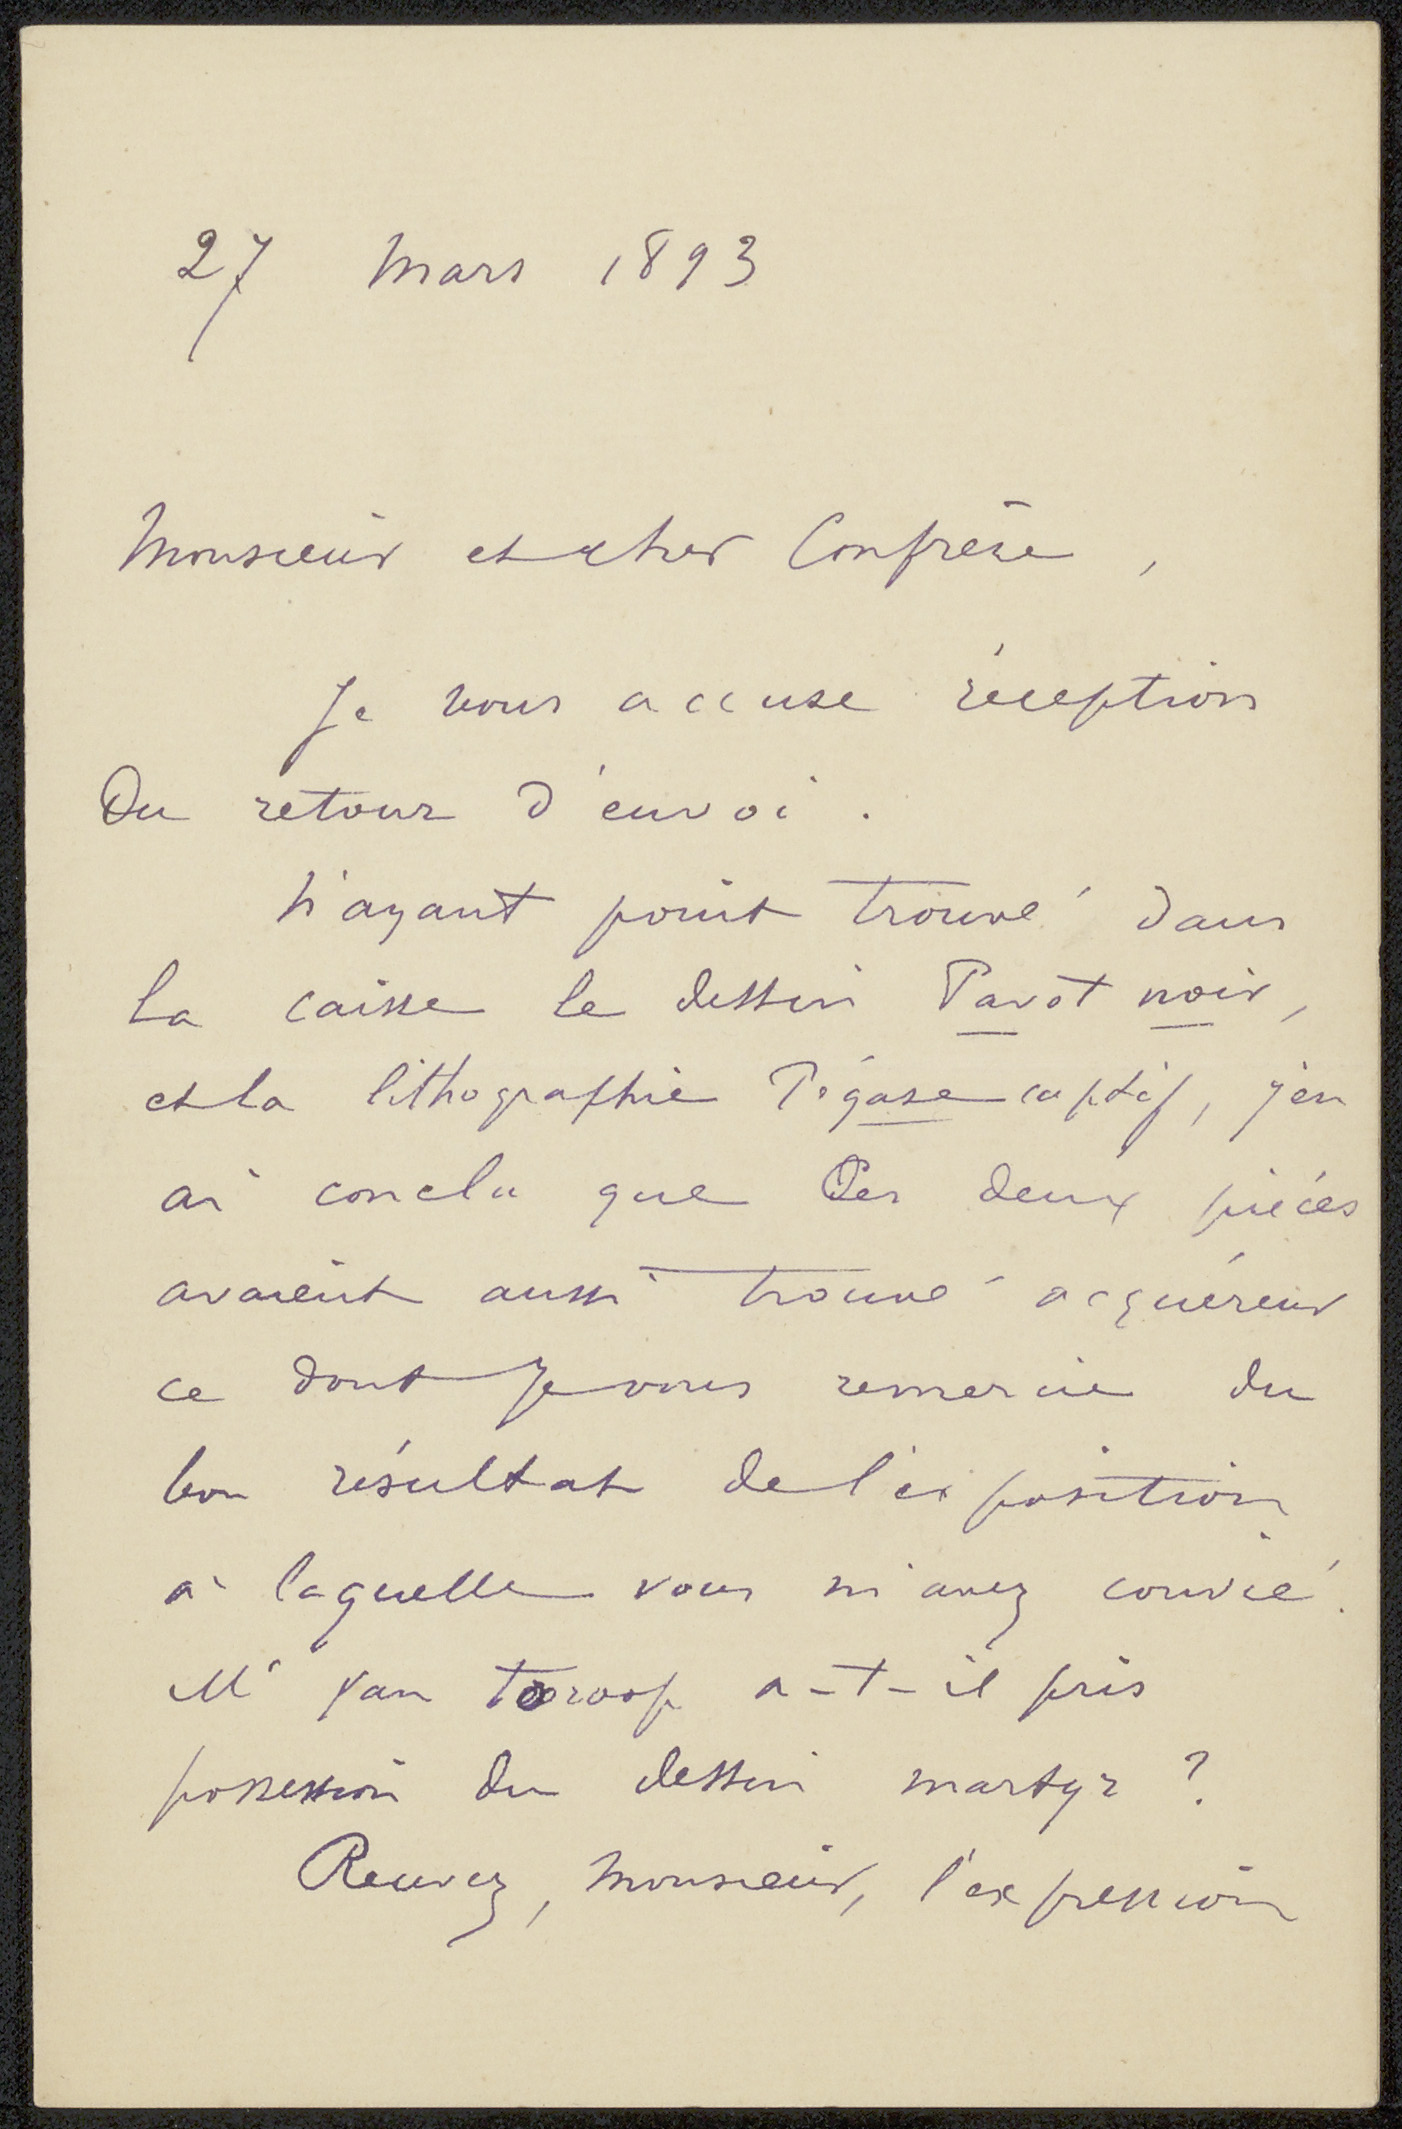 27 Mars 1893
Monsieur et cher Confrère,
Je vous accuse réception
Du retour d'envoi.
N'ayant point trouvé dans
la caisse le dessin Pavot noir,
et la lithographie Pégase captif, j'en
ai conclu que Ces deux pièces
avaient aussi trouvé acquéreur
ce dont Je vous remercie du
bon résultat de l'exposition
à laquelle vous m'avez convié.
Mr Yan Tooroop a-t-il pris
possession du dessin martyr ?
Recevez, Monsieur, l'expression